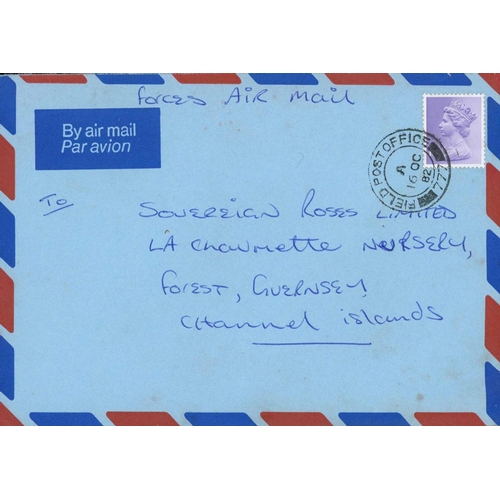 Forces Air Mail
By air mail
Par avion
FIELD POST OFFICE 777
A
16 OC
82
To
Sovereign Roses Limited
La Chaumette Nursery,
Forest, Guernsey
Channel Islands